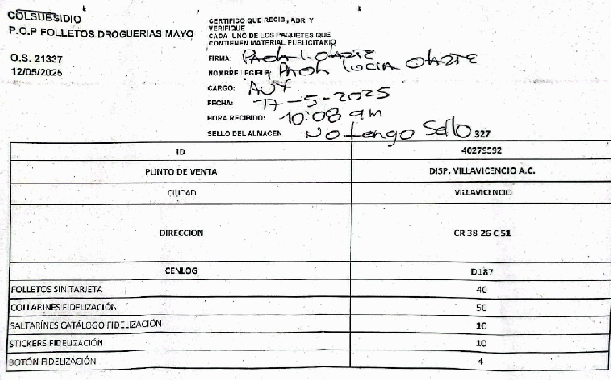 COLSUBSIDIO
P.O.P FOLLETOS DROGUERIAS MAYO
O.S. 21327
12/05/2025
CERTIFICO QUE RECIBI, ABRI Y
VERIFIQUE
CADA UNO DE LOS PAQUETES QUE
CONTIENEN MATERIAL PUBLICITARIO
FIRMA:
NOMBRE LEGIBLE: Lucia Oñate
CARGO: AUX
FECHA: 17-5-2025
HORA RECIBIDO: 10:08 am
SELLO DEL ALMACEN No tengo Sello 327
ID 40275592
PUNTO DE VENTA DISP. VILLAVICENCIO A.C.
CIUDAD VILLAVICENCIO
DIRECCION CR 38 26 C 51
CENLOG D187
FOLLETOS SIN TARJETA 40
COLLARINES FIDELIZACIÓN 50
SALTARÍNES CATÁLOGO FIDELIZACIÓN 10
STICKERS FIDELIZACIÓN 10
BOTÓN FIDELIZACIÓN 4